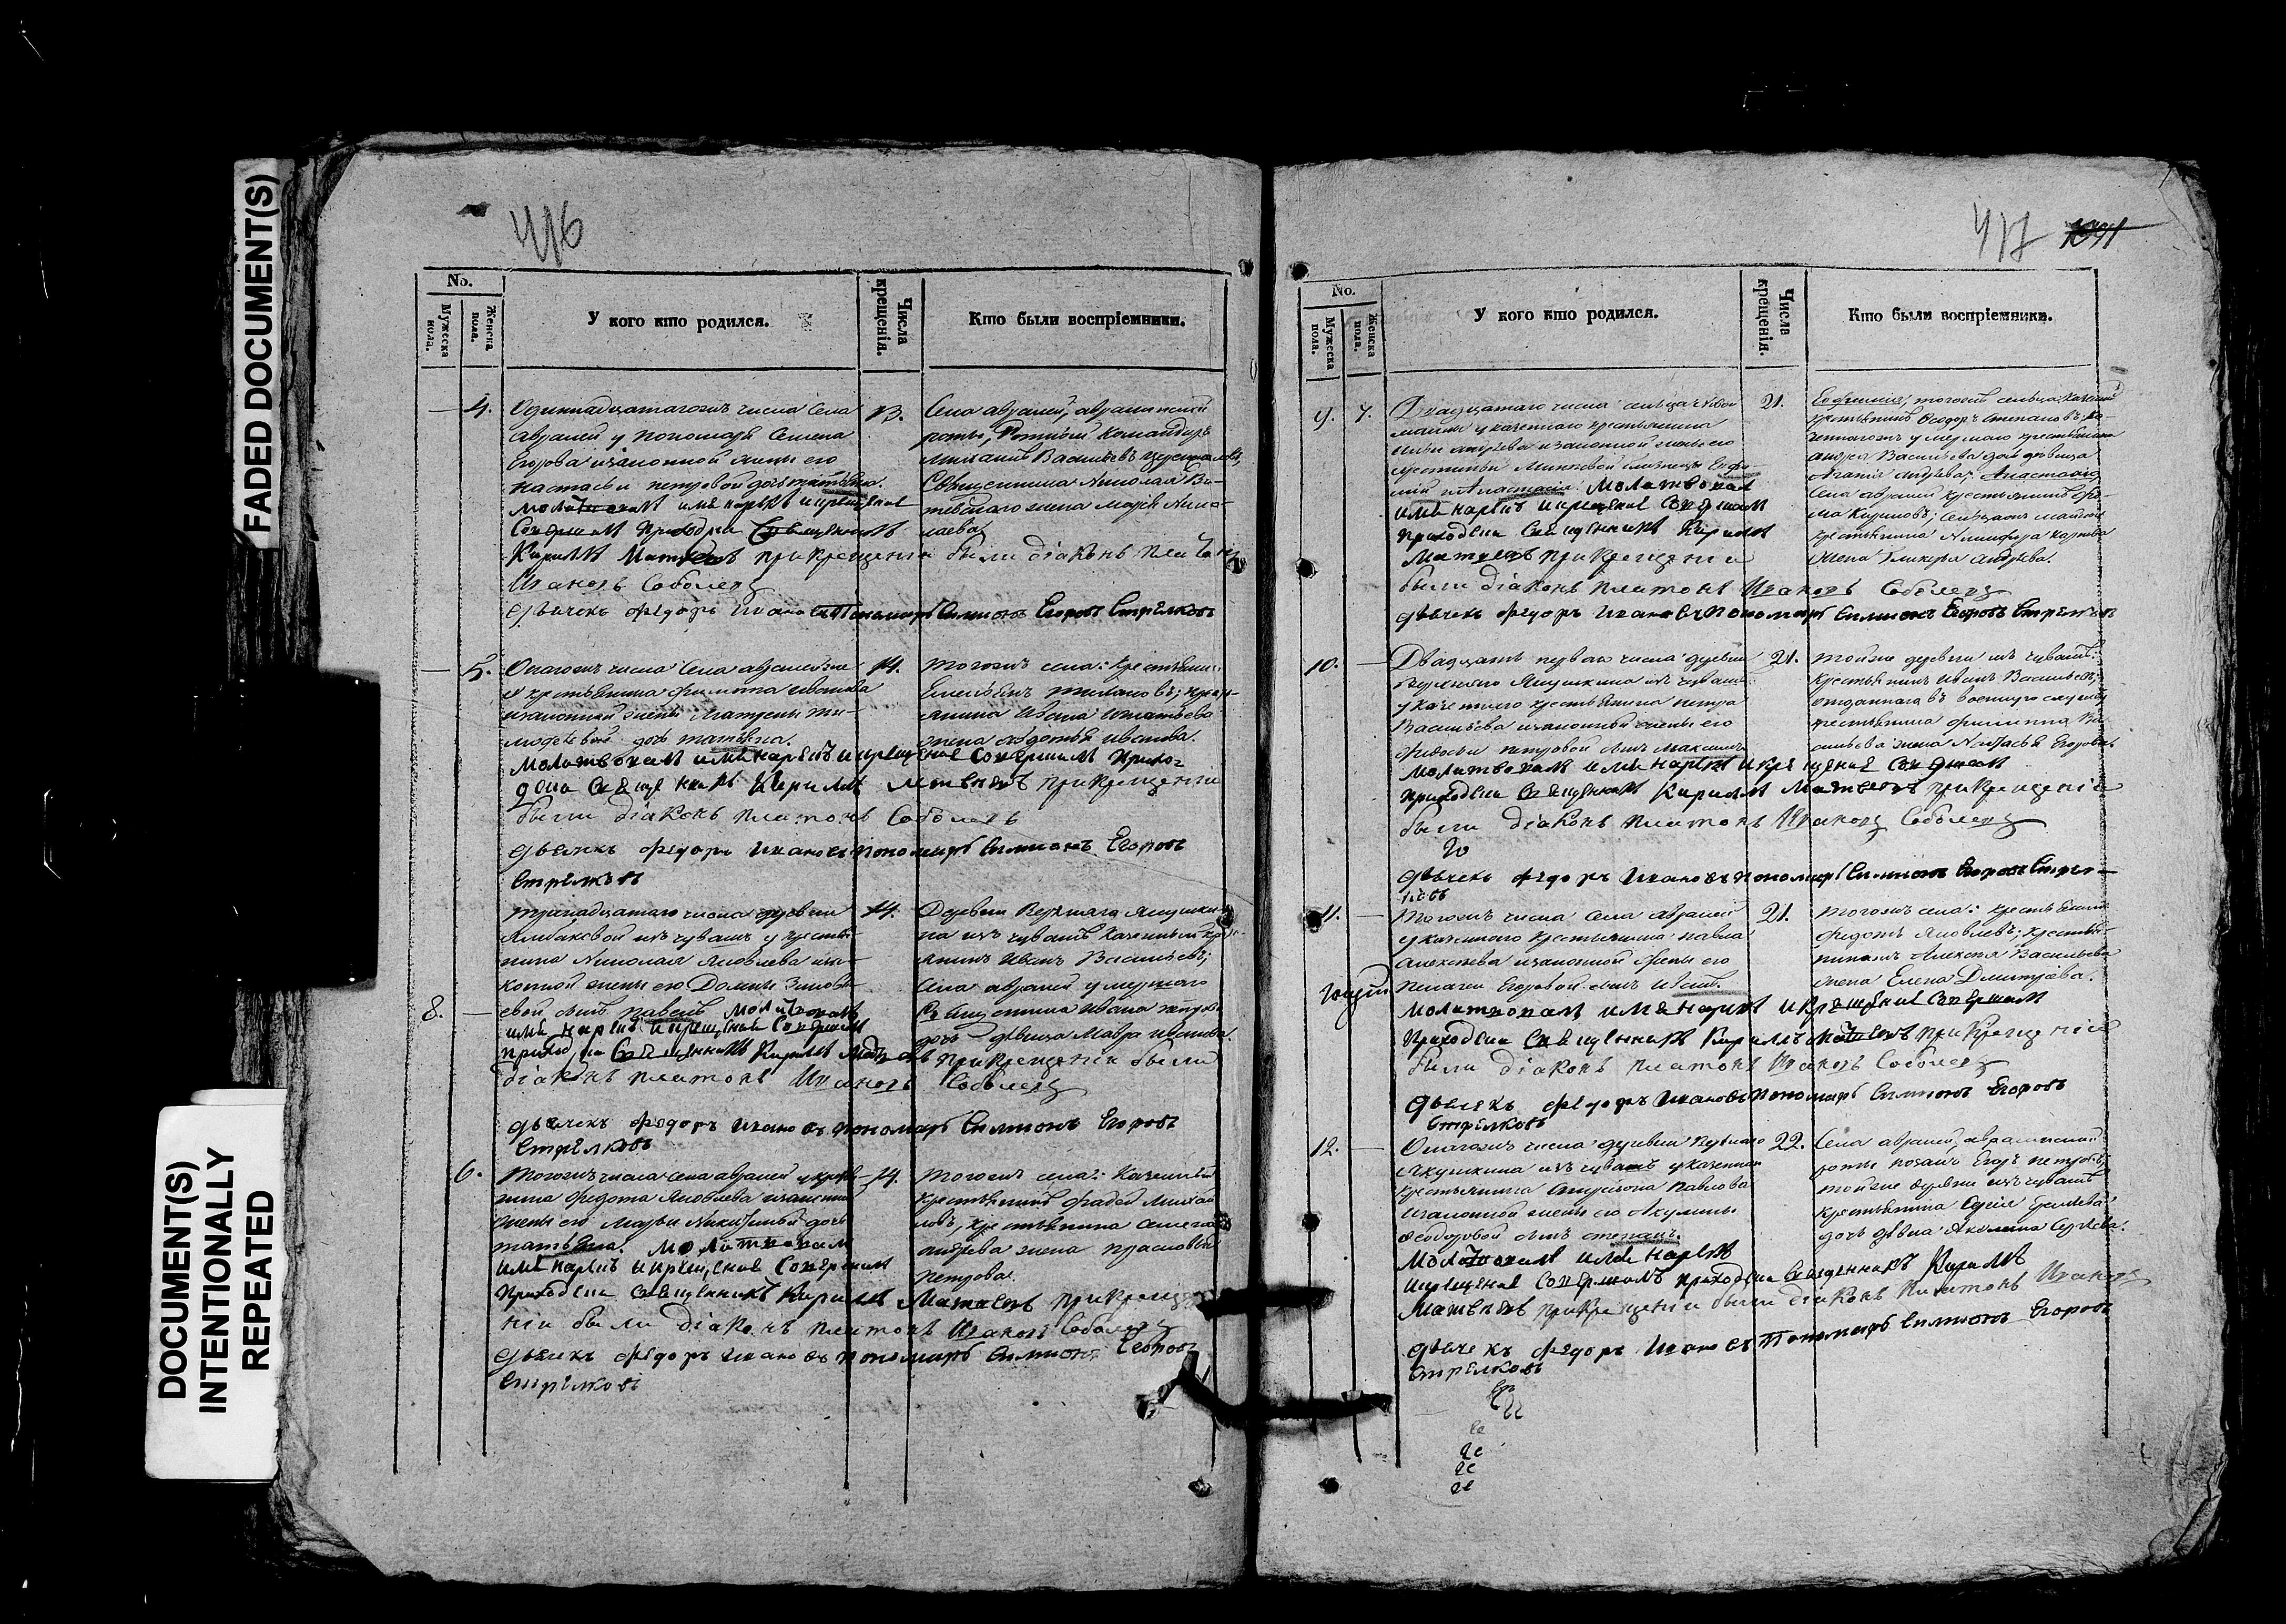 FADED DOCUMENT(S)
DOCUMENT(S)
INTENTIONALLY
REPEATED
416
No.
Мужеска пола.
Женска пола.
У кого кто родился.
Числа крещенія.
Кто были воспріемники.
4.
Одиннадцатагожъ числа села
Авралей у пономаря Семена
Егорова и законной жены его
Настасьи Петровой дочь татьяна.
молитвовалъ имя нарекъ и крещение
Совершилъ Приходски Священникъ
Кирилъ Матвеевъ при крещении были діаконъ платонъ
Ивановъ Соболевъ
дьячекъ федоръ ивановъ Пономарь Симионъ Егоровъ Стрелковъ
13.
Села Авралей, авралинской
роты, Ротный Командиръ
Михаилъ Васильевъ
Священника Николая Ви-
жена Марья Нико-
лаева.
5.
Тогожъ числа Села Авралей
у крестьянина Филиппа Иванова
и законной жены Матрены Ти-
мофеевой дочь татьяна.
молитвовалъ имя нарекъ и крещение Совершилъ Прихо-
дски Священникъ Кирилъ Матвеевъ при крещении
были діаконъ платонъ Соболевъ
дьячекъ федоръ ивановъ пономарь Симионъ Егоровъ
Стрелковъ
14.
тогожъ села: крестьянинъ
Емельянъ
Ивана Игнатьева
жена Авдотья Иванова.
8.
тринадцатаго числа деревни
Ямбаковой изъ чувашъ у крестья-
нина Николая Яковлева и за-
конной жены его Домны Зиновь-
евой сынъ павелъ молитвовалъ
имя нарекъ и крещение Совершилъ
приходски Священникъ Кирилъ Матвеевъ при крещении были
діаконъ платонъ Ивановъ Соболевъ
дьячекъ федоръ ивановъ пономарь Симионъ Егоровъ
Стрелковъ
14.
Деревни Верхняго Якушки-
на изъ чувашъ казенный
Иванъ Васильевъ;
села Авралей умершаго
Священника Ивана Петрова
дочь девица Мавра Иванова.
6.
Тогожъ числа села Авралей у крестья-
нина Федота Яковлева и законной
жены его Марьи Никитиной дочь
татьяна. молитвовалъ
имя нарекъ и крещение Совершилъ
Приходски Священникъ Кирилъ Матвеевъ при креще-
ніи были діаконъ платонъ Ивановъ Соболевъ
дьячекъ федоръ ивановъ пономарь Симионъ Егоровъ
Стрелковъ
14.
тогожъ села: Казенный
крестьянинъ Фадей Михай
ловъ, крестьянина
Андрева жена прасковья
Петрова.
417
No.
Мужеска пола.
Женска пола.
У кого кто родился.
Числа крещенія.
Кто были воспріемники.
9.
7.
Двадцатаго числа сельца
майны у казеннаго крестьянина
Ильи Андрева и законной жены его
Миневой близнецы Евфи-
мій и Анастасія. молитвовал
имя нарекъ и крещение Совершил
приходски Священникъ Кирилъ
Матвеевъ при крещении
были діаконъ платонъ Ивановъ Соболевъ
дьячекъ федоръ ивановъ пономарь Симионъ Егоровъ Стрелковъ
21.
Евфимія, тогожъ сельца казеный
крестьянинъ Феодоръ Степановъ;
у мершаго крестьянина
Андрея Васильева дочь девица
Агафія Андрева; Анастасіи,
села Авралей крестьянинъ
Кириловъ; сельца майны
крестьянина Никифора Карпова
жена Гликера Андрева.
10.
Двадцать перваго числа деревни
Верхняго Якушкина изъ чувашъ
у казеннаго крестьянина Петра
Васильева и законной жены его
Федосьи Петровой сынъ Максимъ
молитвовалъ имя нарекъ и крещение Совершил
приходски Священникъ Кирилъ Матвеевъ при крещении
были діаконъ платонъ Ивановъ Соболевъ
дьячекъ федоръ ивановъ пономарь Симионъ Егоровъ Стрел-
ковъ
21.
тойже деревни изъ чувашъ:
Крестьянинъ Иванъ Васильевъ;
отданнаго въ военную службу
крестьянина Филиппа Ва-
сильева жена Настасья Егорова.
11.
Тогожъ числа села Авралей
у казеннаго крестьянина Павла
Алексеева и законной жены его
Пелагеи Егоровой сынъ Иванъ.
молитвовалъ имя нарекъ и крещение Совершил
Приходски Священникъ Кирилъ Матвеевъ при крещении
были діаконъ платонъ Ивановъ Соболевъ
дьячекъ федоръ ивановъ пономарь Симионъ Егоровъ
Стрелковъ
21.
тогожъ села: крестьянинъ
Федотъ Яковлевъ; крестья-
нина Алексея Васильева
жена Елена Дмитріева.
12.
Тогожъ числа деревни Верхняго
Якушкина изъ чувашъ у казеннаго
крестьянина Спиридона Павлова
и законной жены его Акулины
Феодоровой сынъ степанъ.
молитвовалъ имя нарекъ
и крещение Совершилъ приходски Священникъ Кирилъ
Матвеевъ при крещении были діаконъ Платонъ Ивановъ
дьячекъ федоръ ивановъ Пономарь Симионъ Егоровъ
Стрелковъ
22.
Села Авралей, авралинской
роты Егоръ Петровъ
тойже деревни изъ чувашъ
крестьянина Сергія
дочь девица Акулина Сергеева.